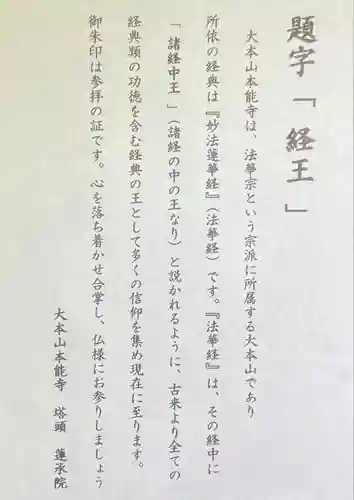 題字「経王」
大本山本能寺は、法華宗という宗派に所属する大本山であり
所依の経典は『妙法蓮華経』（法華経）です。『法華経』は、その経中に
「諸経中王」（諸経の中の王なり）と説かれるように、古来より全ての
経典類の功徳を含む経典の王として多くの信仰を集め現在に至ります。
御朱印は参拝の証です。心を落ち着かせ合掌し、仏様にお参りしましょう
大本山本能寺　塔頭　蓮承院